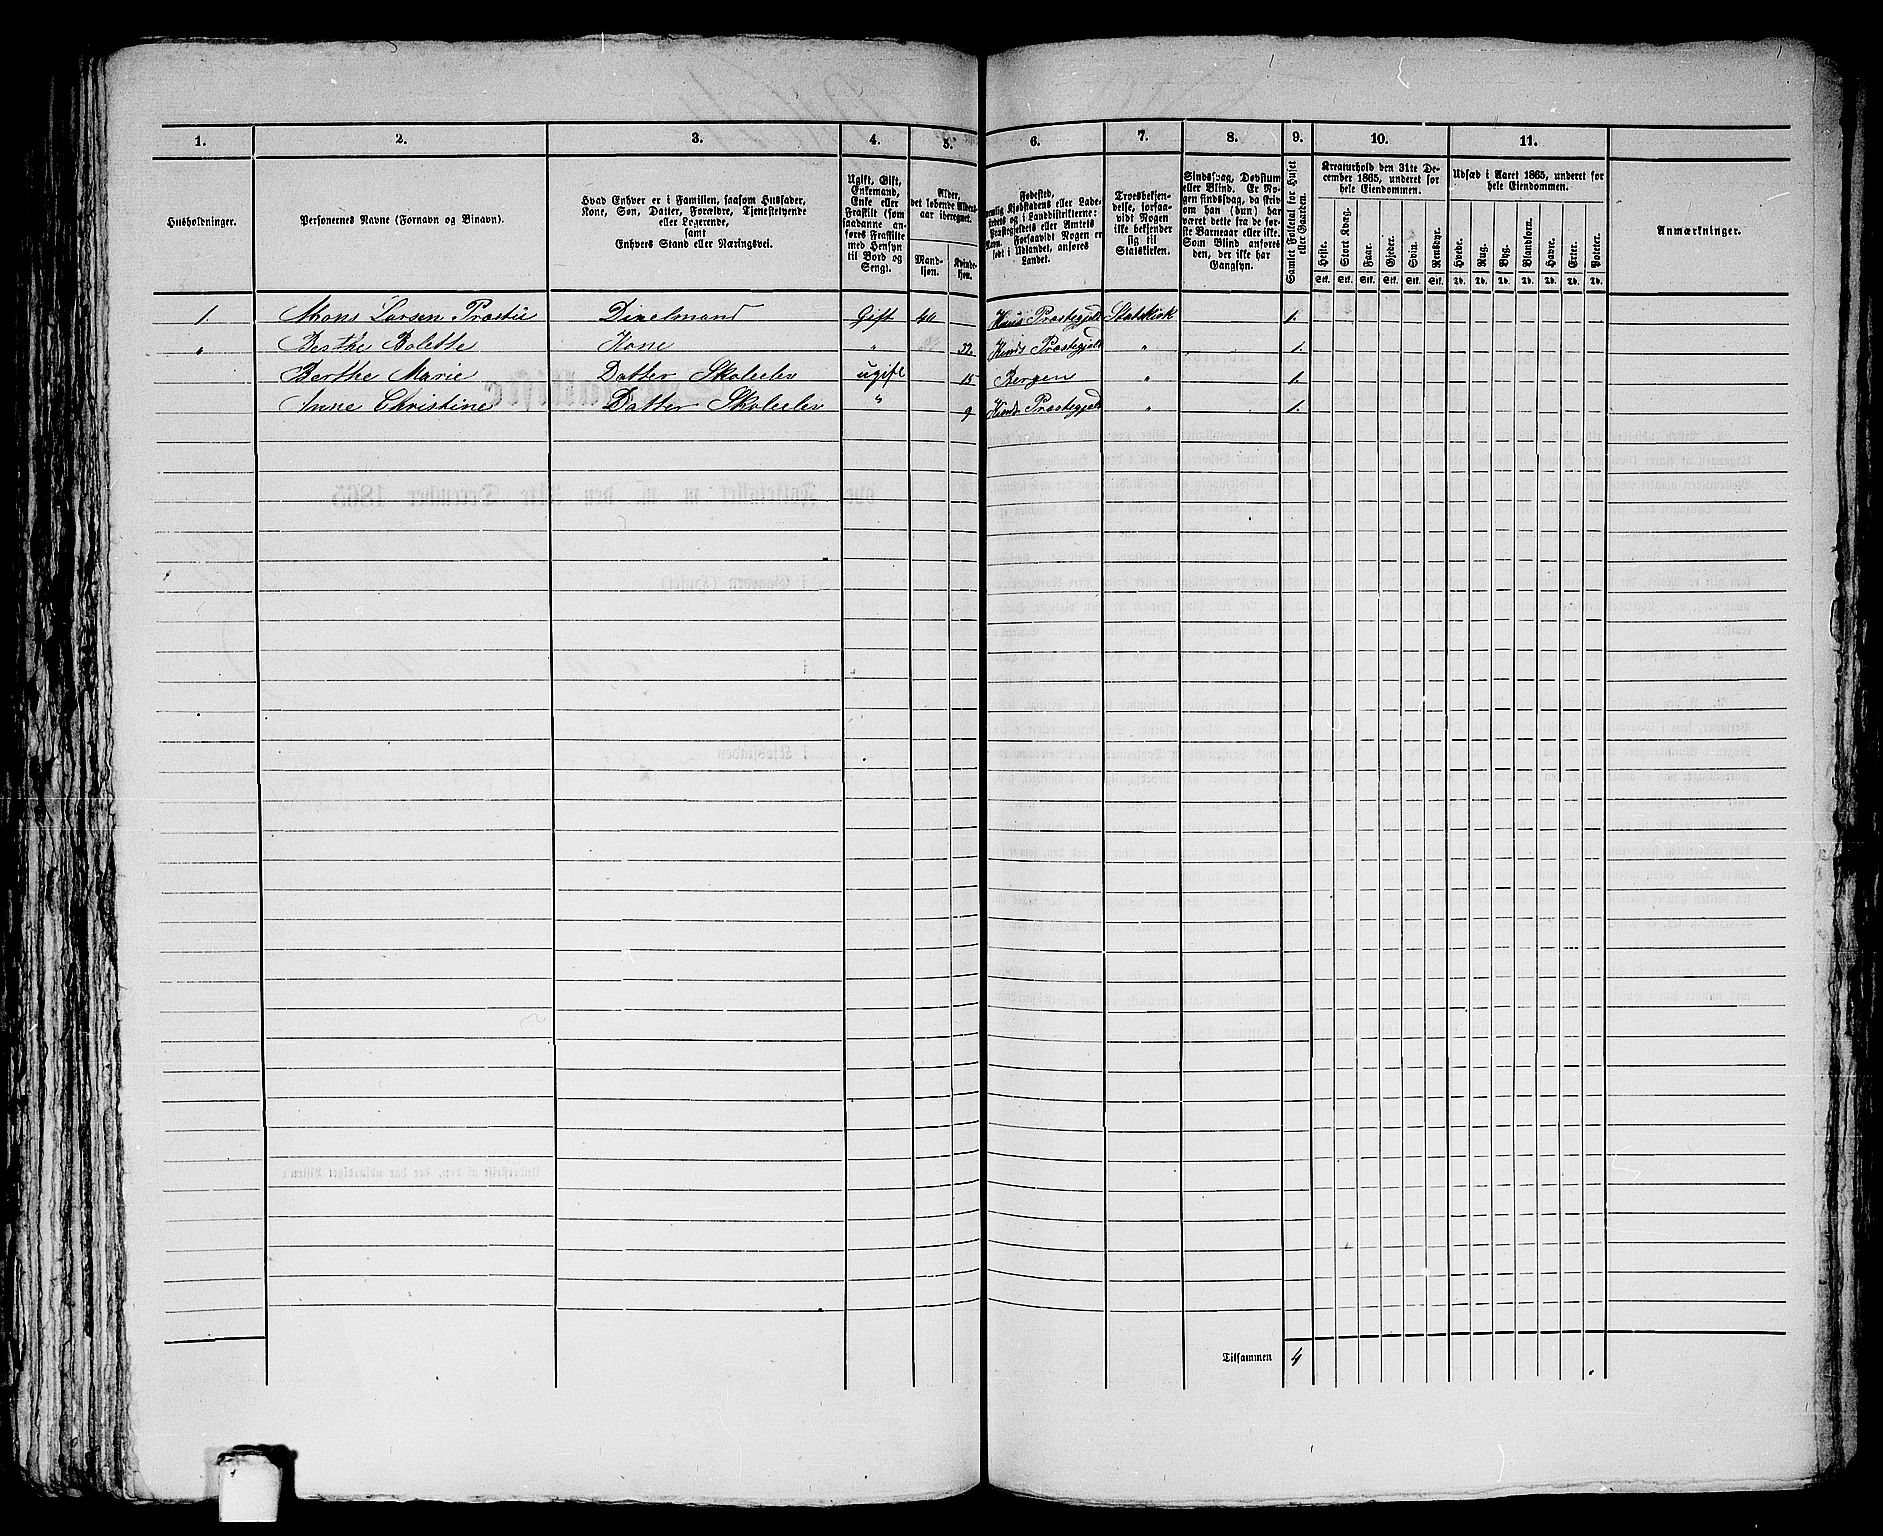 1. 2. 3. 4. 5. 6. 7. 8. 9. 10. 11.
Husholdninger.
Personernes Navne (Fornavn og Binavn).
Hvad Enhver er i Familien, saasom Husfader,
Kone, Søn, Datter, Forældre, Tjenestetyende
eller Logerende,
samt
Enhvers Stand eller Næringsvei.
Ugift, Gift,
Enkemand,
Enke eller
Fraskilt (som
saadanne an-
føres Fraskilte
med Hensyn
til Bord og
Seng).
Alder,
det løbende Alders-
aar iberegnet.
Mand-
kjøn.
Kvinde-
kjøn.
Fødested,
Trosbekjen-
delse, forsaa-
vidt Nogen
ikke bekjender
sig til
Statskirken.
Sindssvag, Døvstum
eller Blind. Er No-
gen sindssvag, da skriv
om han (hun) har
været dette fra de før-
ste Barneaar eller ikke.
Som Blind anføres
den, der ikke har
Gangsyn.
Samlet Folketal for Huset
eller Gaarden.
Kreaturhold den 31te De-
cember 1865, underet for
hele Eiendommen.
Heste. Stort Kvæg. Faar. Gjeder. Svin. Rensdyr.
Stk. Stk. Stk. Stk. Stk. Stk.
Udsæd i Aaret 1865, underet for
hele Eiendommen.
Hvede. Rug. Byg. Blandkorn. Havre. Erter. Poteter.
Td. Td. Td. Td. Td. Td. Td.
Anmærkninger.
1 Mons Larsen Gift 40 Præstegjeld Statskirk 1.
" Berthe Bolette Kone " 32 Kinds Præstegjeld " 1.
Berthe Marie Datter Skoleelev ugift 15 Bergen " 1.
Anne Christine Datter Skoleelev " 9 Kinds Præstegjeld " 1.
Tilsammen 4